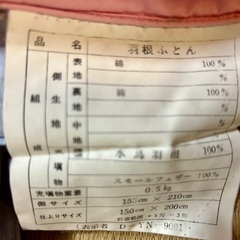 品名 羽根ふとん
組 側生地 表地 綿 100%
裏地 綿 100%
中地
水鳥羽根 100%
填物 スモールフェザー 100%
充填物重量 0.5kg
側サイズ 155cm × 210cm
仕上りサイズ 150cm × 200cm
(表示者 D-YN-9001